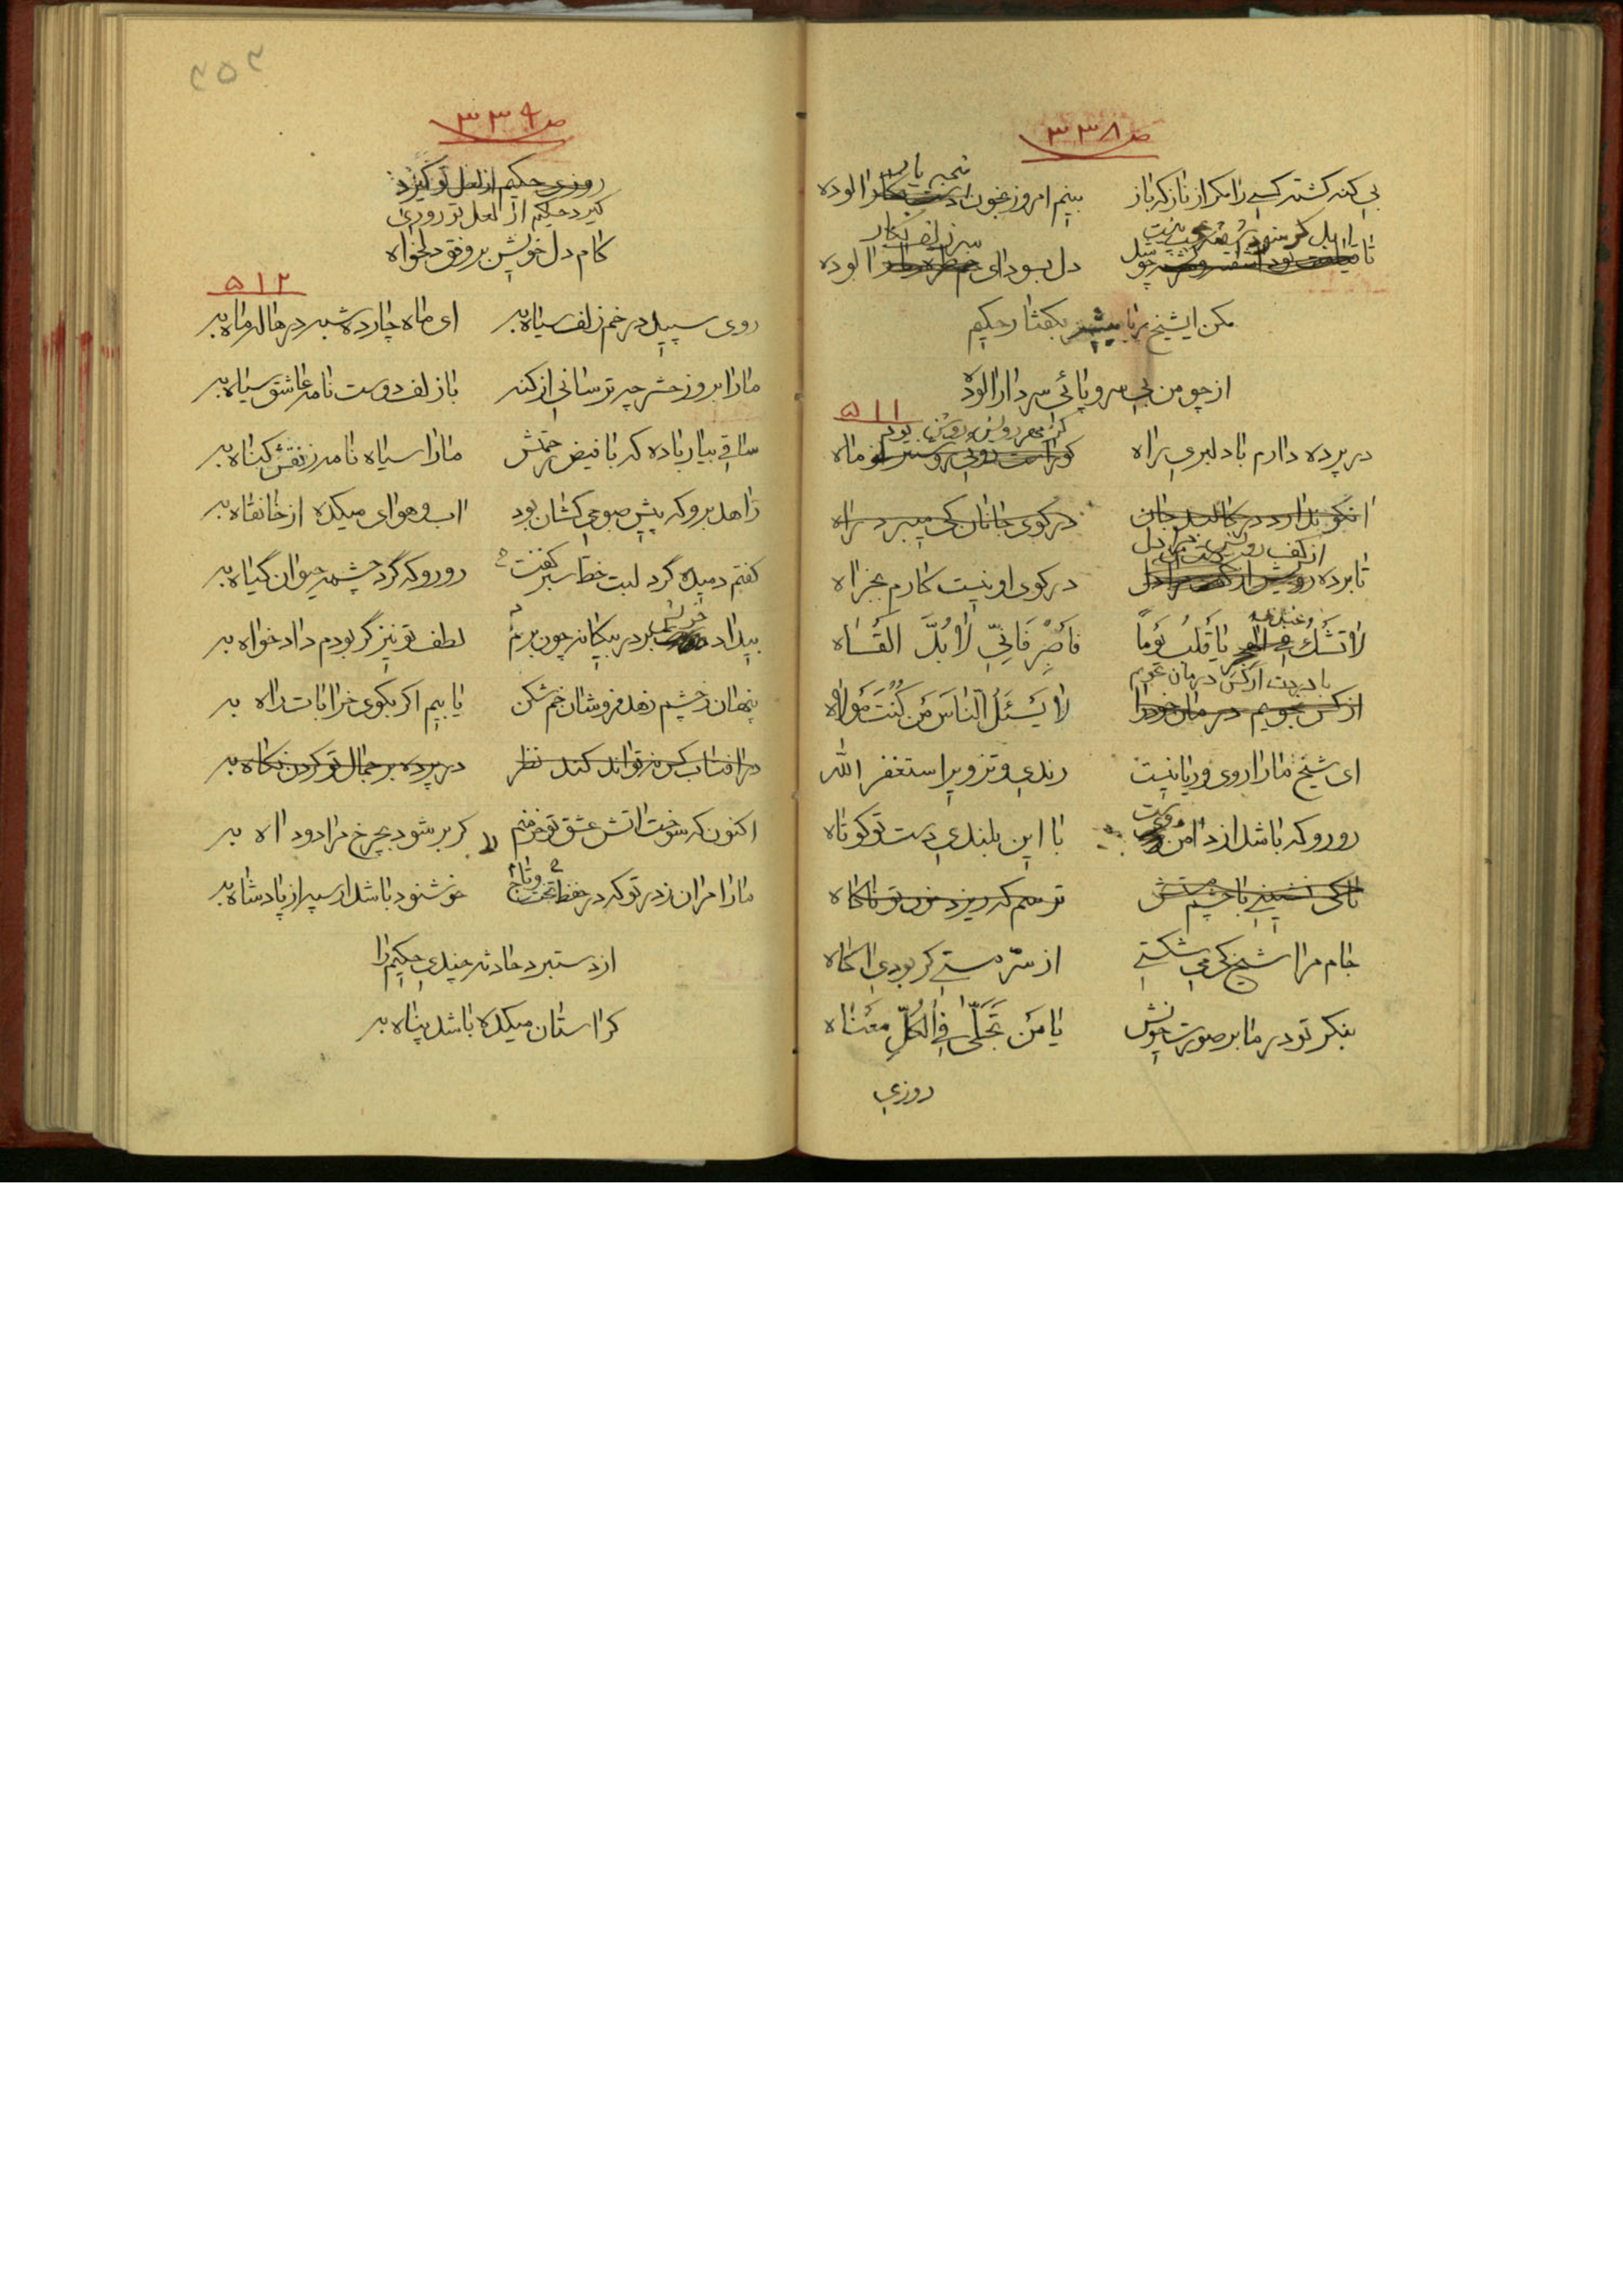 ص ۳۳۸
بی کنه کشته کسی را مکر از ناز که باز
بینم امروز بخون الوده
دل بسودای الوده
مکن ایشیخ بکفتار حکیم
از چو من بی سر و پائی سر دارالوده
۵۱۱
در پرده دارم با دلبری راه
انکو ندارد در کالبد جان
در کوی جانان کی میبرد راه
تا برده
در کوی او نیست کارم بجز اه
لا تشک یا قلب یوماً
فاصبر فانّی لا بدّ القاه
از کس بجویم درمان خود را
لا یسئل النّاس من کنت مولاه
ای شیخ ما را روی و ریا نیست
رندی و تزویر استغفر الله
رو رو که باشد از دامن
با این بلندی دست تو کوتاه
تا کی نشینی با چشم مستش
ترسم که ریزد خون تو ناکاه
جام مرا شیخ کی می شکستی
از سرّ مستی کر بودی اکاه
بنکر تو در ما بر صورت خویش
یا من تجلّی فی الکلّ معناه
روزی
ص ۳۳۹
روزی حکیم از لعل تو کیرد
کیرد حکیم از لعل تو روزی
کام دل خویش بر وفق دلخواه
۵۱۲
روی سپید در خم زلف سیاه به
ای ماه چارده شبه در هاله ماه به
ما را بروز حشر چه ترسانی از کنه
با زلف دوست نامه عاشق سیاه به
ساقی بیار باده که با فیض رحمتش
ما را سیاه نامه ز نقش کناه به
زاهد برو که پیش صبوحی کشان بود
اب و هوای میکده از خانقاه به
کفتم دمیده گرد لبت خط سبز کفت
رو رو که گرد چشمه حیوان گیاه به
بیداد بر در بیکانه چون برم
لطف تو نیز گر بودم دادخواه به
پنهان ز چشم زهد فروشان خم شکن
یابیم اکر بکوی خرابات راه به
در افتاب کس نتواند کند نظر
در پرده بر جمال تو کردن نکاه به
اکنون که سوخت اتش عشق تو خرمنم
کر بر شود بچرخ مرا دود اه به
ما را مران ز در تو که در حفظ تخت و تاج
خوشنود باشد ار سپه از پادشاه به
از دستبرد حادثه چندی حکیم را
کر استان میکده باشد پناه به